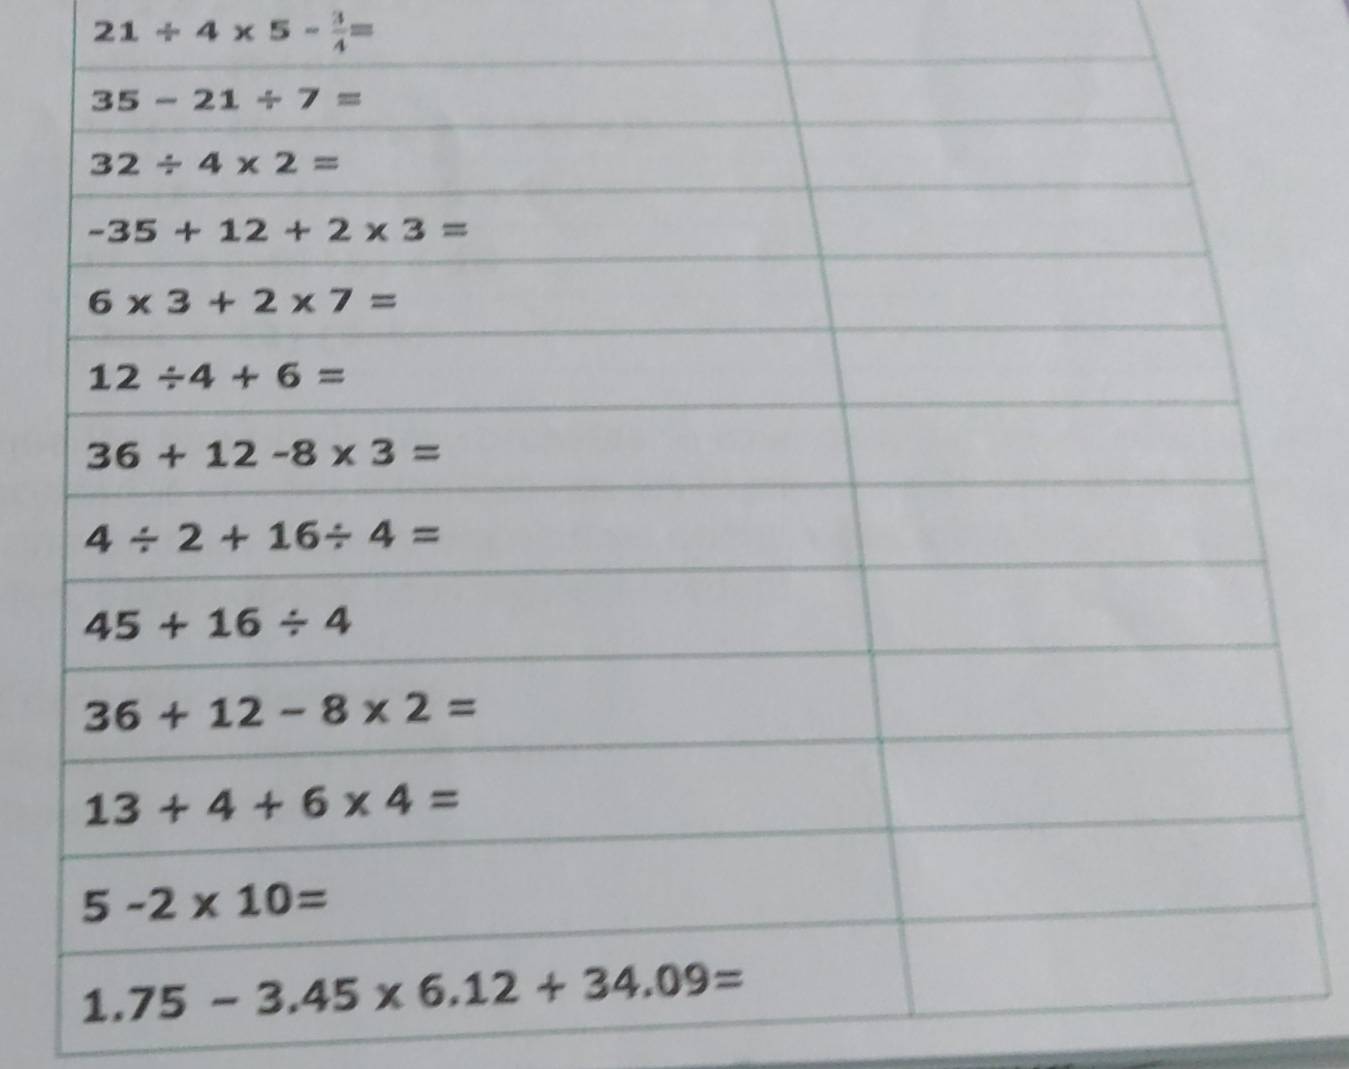 21 ÷ 4 x 5 - 3/4=
35 - 21 ÷ 7 =
32 ÷ 4 x 2 =
-35 + 12 + 2 x 3 =
6 x 3 + 2 x 7 =
12 ÷4 + 6 =
36 + 12 -8 x 3 =
4 ÷ 2 + 16÷ 4 =
45 + 16 ÷ 4
36 + 12 - 8 x 2 =
13 + 4 + 6 x 4 =
5 -2 x 10=
1.75 - 3.45 x 6.12 + 34.09=